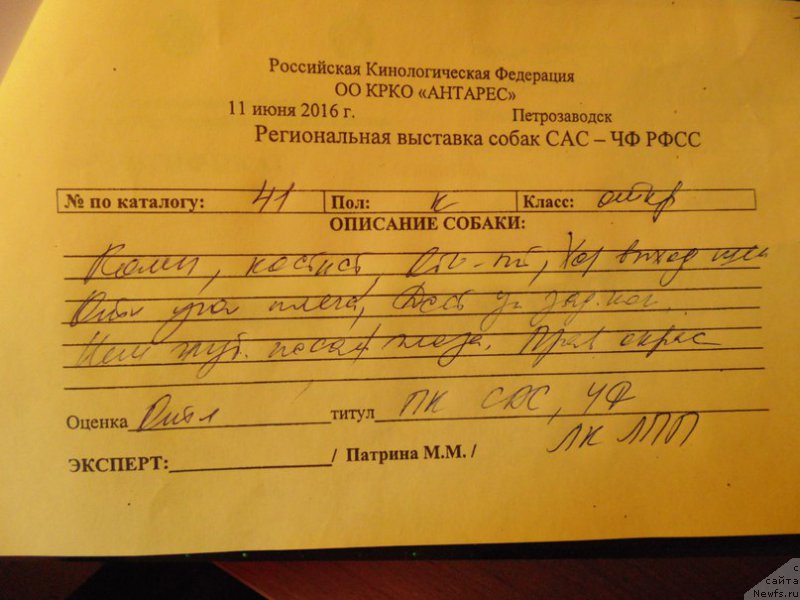 Российская Кинологическая Федерация
ОО КРКО «АНТАРЕС»
11 июня 2016 г. Петрозаводск
Региональная выставка собак САС – ЧФ РФСС
№ по каталогу: 41 Пол: к Класс: откр
ОПИСАНИЕ СОБАКИ:
костист, Хор выход шеи
Отл угол плеча, Дост уг зад. ног.
посаж глаза. Прав окрас
Оценка Отл титул ПК САС, ЧФ
ЛК ЛПП
ЭКСПЕРТ: / Патрина М.М. /
с сайта Newfs.ru